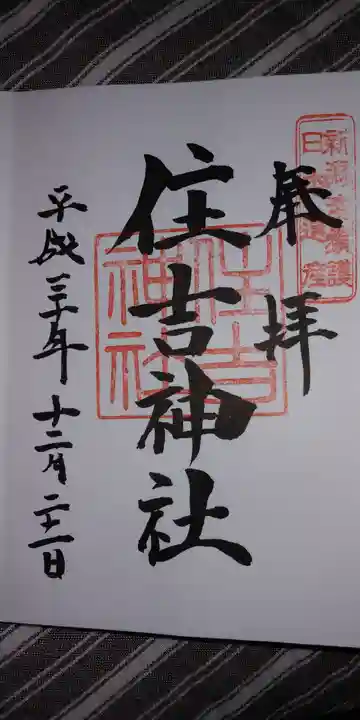 新潟湊守護
日本遺産
奉拝
住吉神社
住吉
神社
平成三十年十二月二十一日